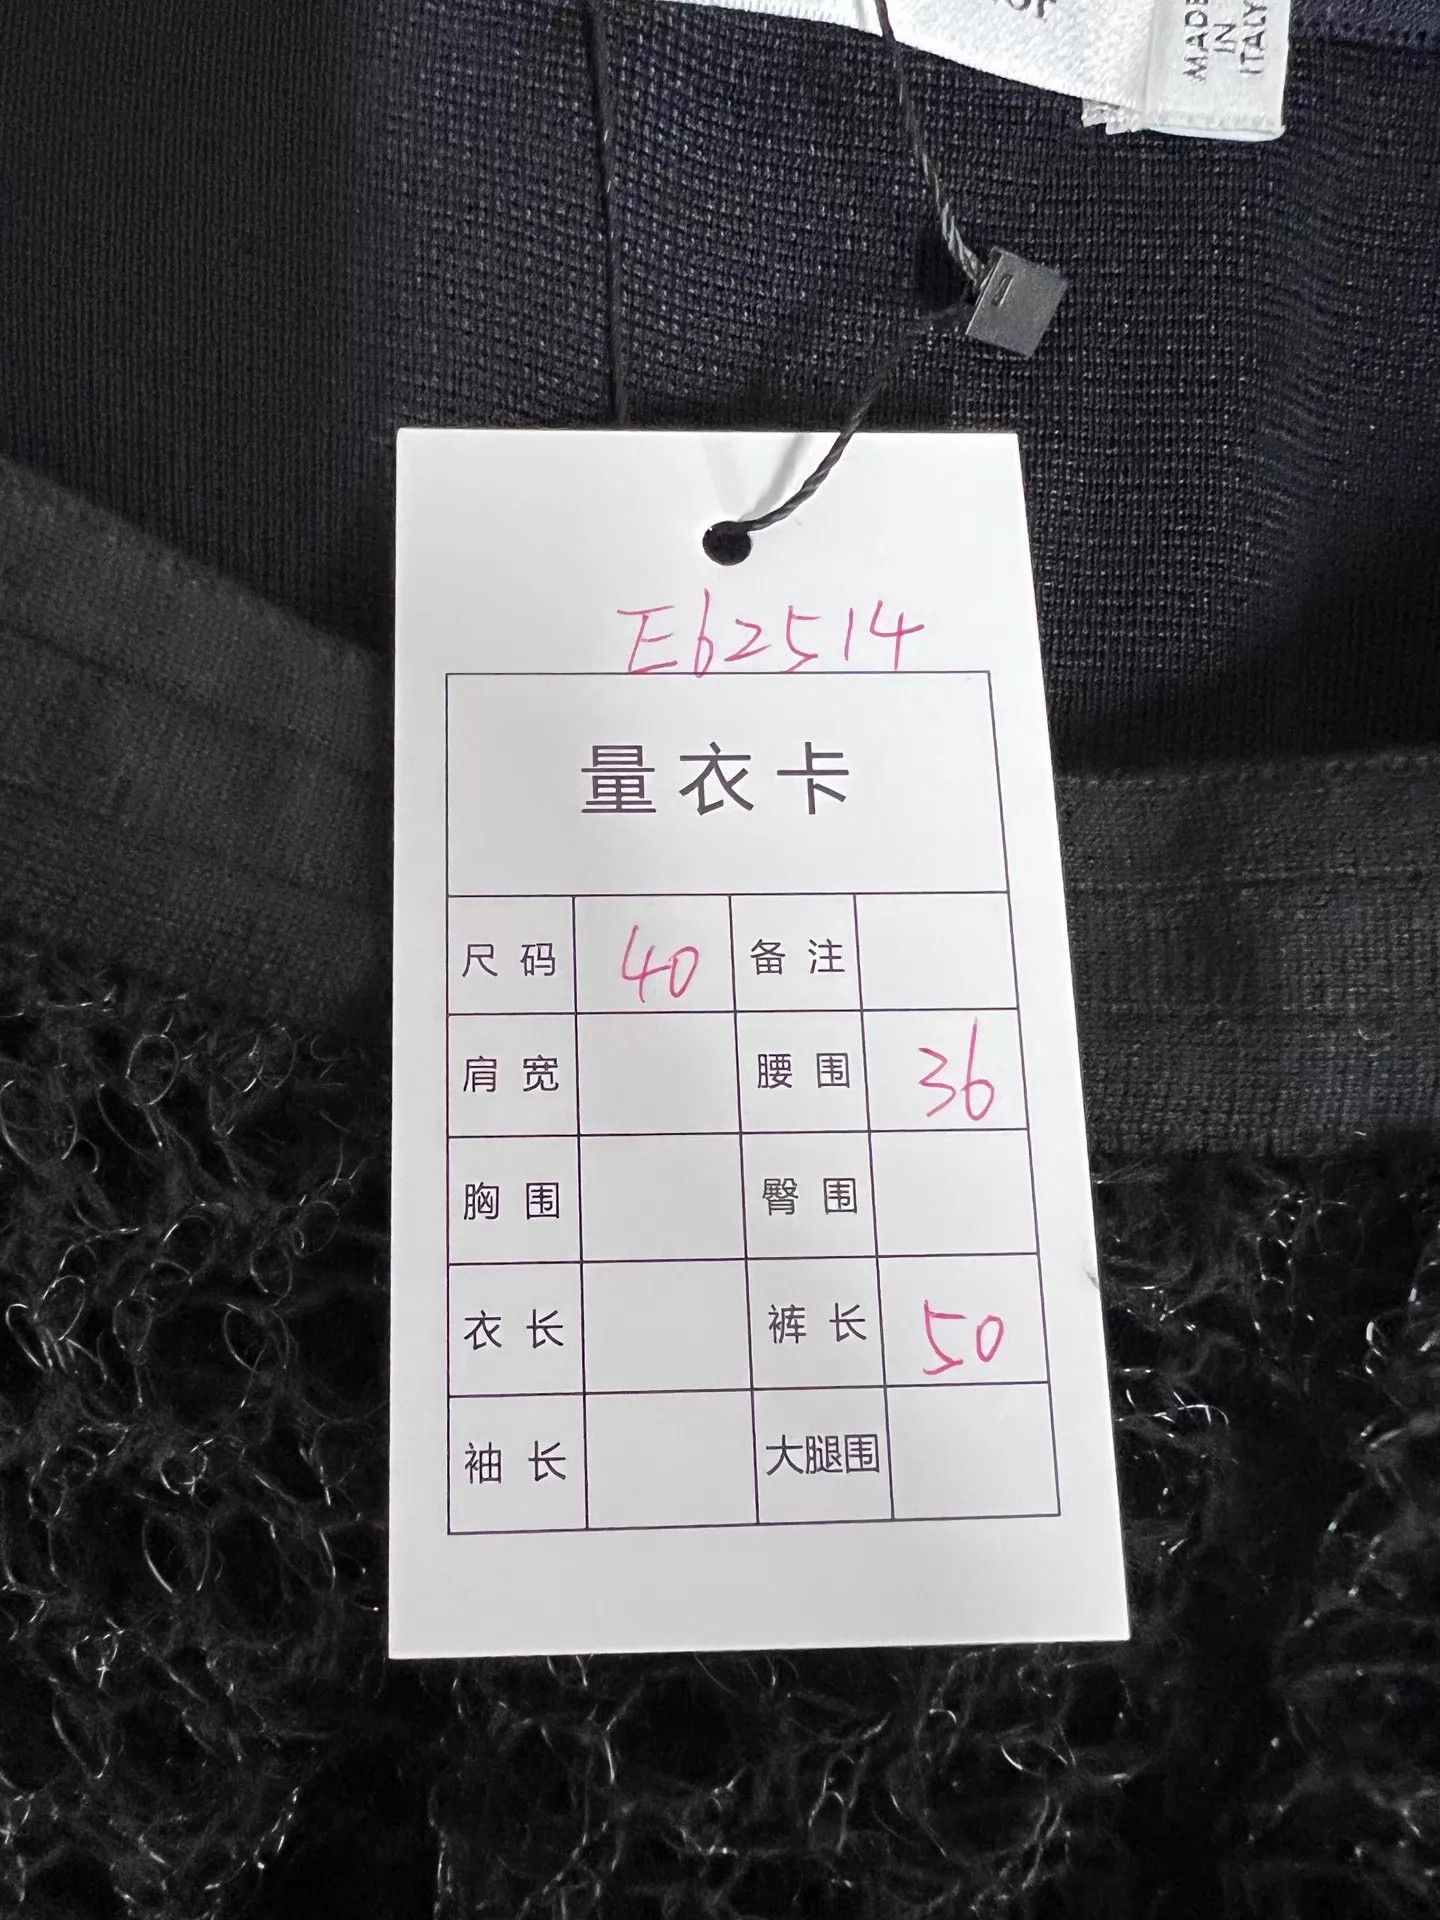 MADE
IN
ITALY
E62514
量衣卡
尺码 40 备注
肩宽 腰围 36
胸围 臀围
衣长 裤长 50
袖长 大腿围